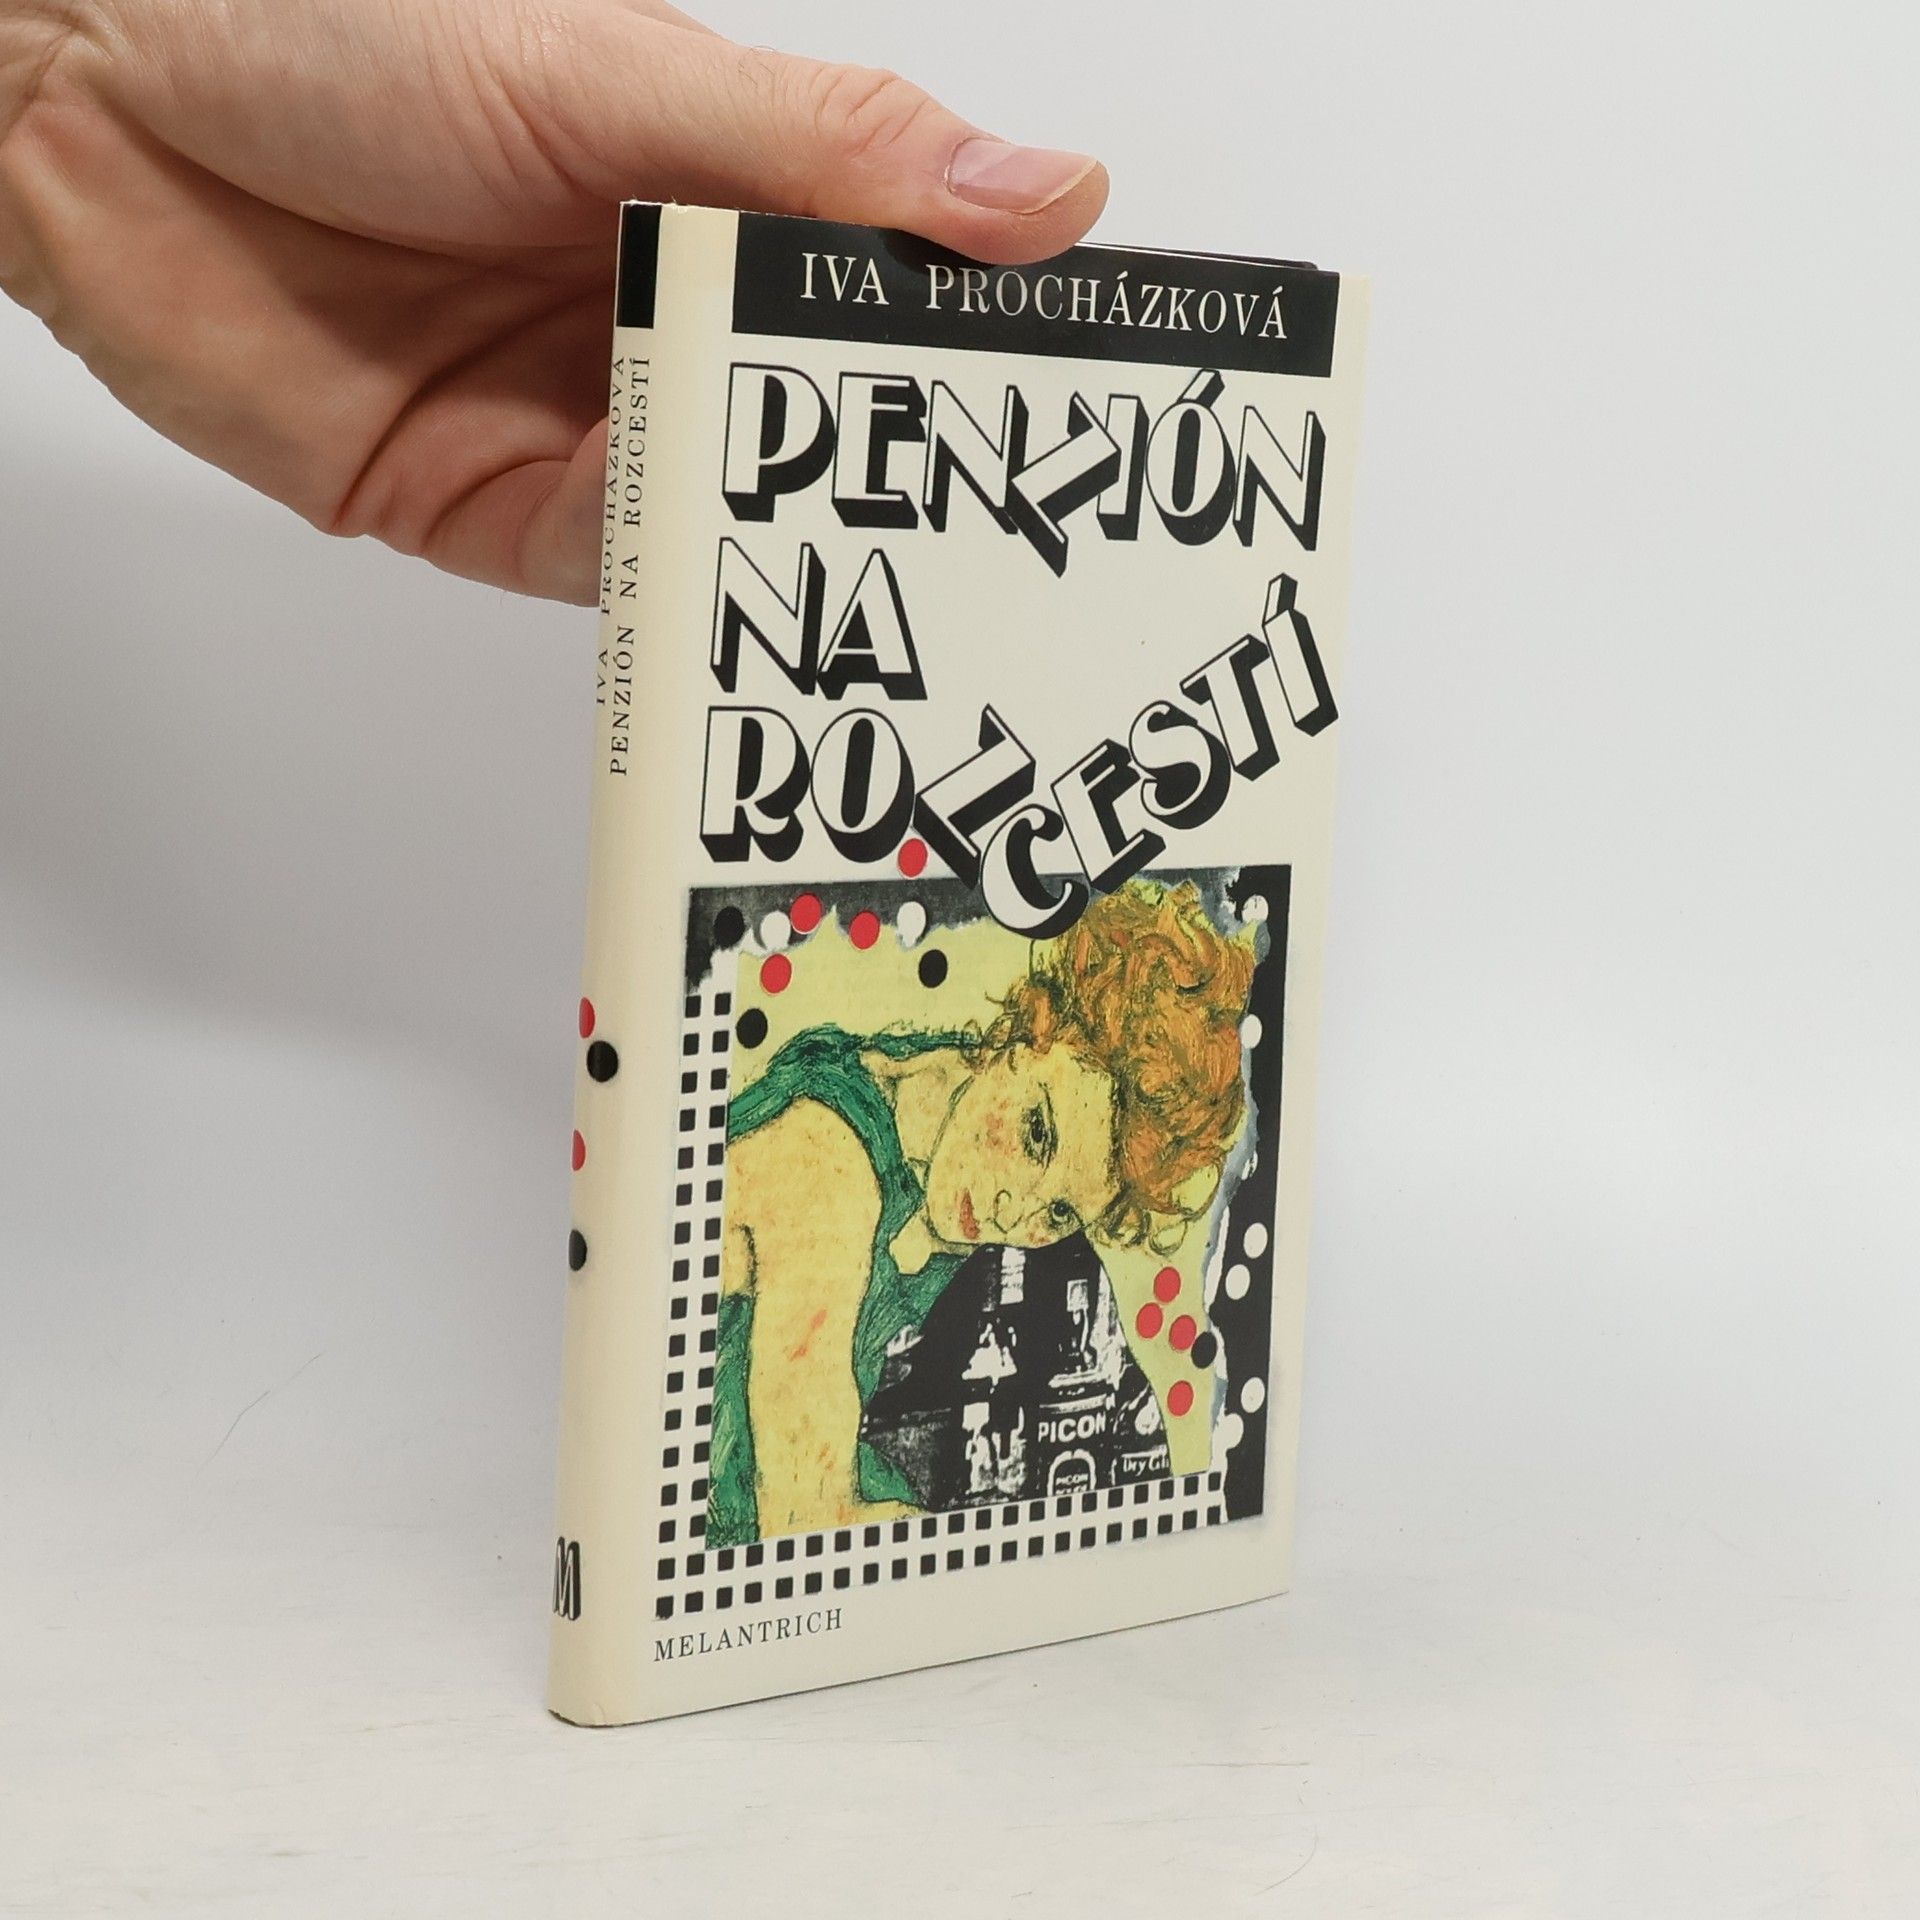 IVA PROCHÁZKOVÁ
PENZIÓN
NA
ROZCESTÍ
PICON
PICON
MELANTRICH
IVA PROCHÁZKOVÁ
PENZIÓN NA ROZCESTÍ
M